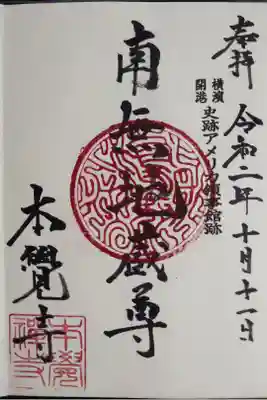 奉拝
令和二年十月十一日
横濱
開港
史跡アメリカ領事館跡
南無地蔵尊
本覺寺